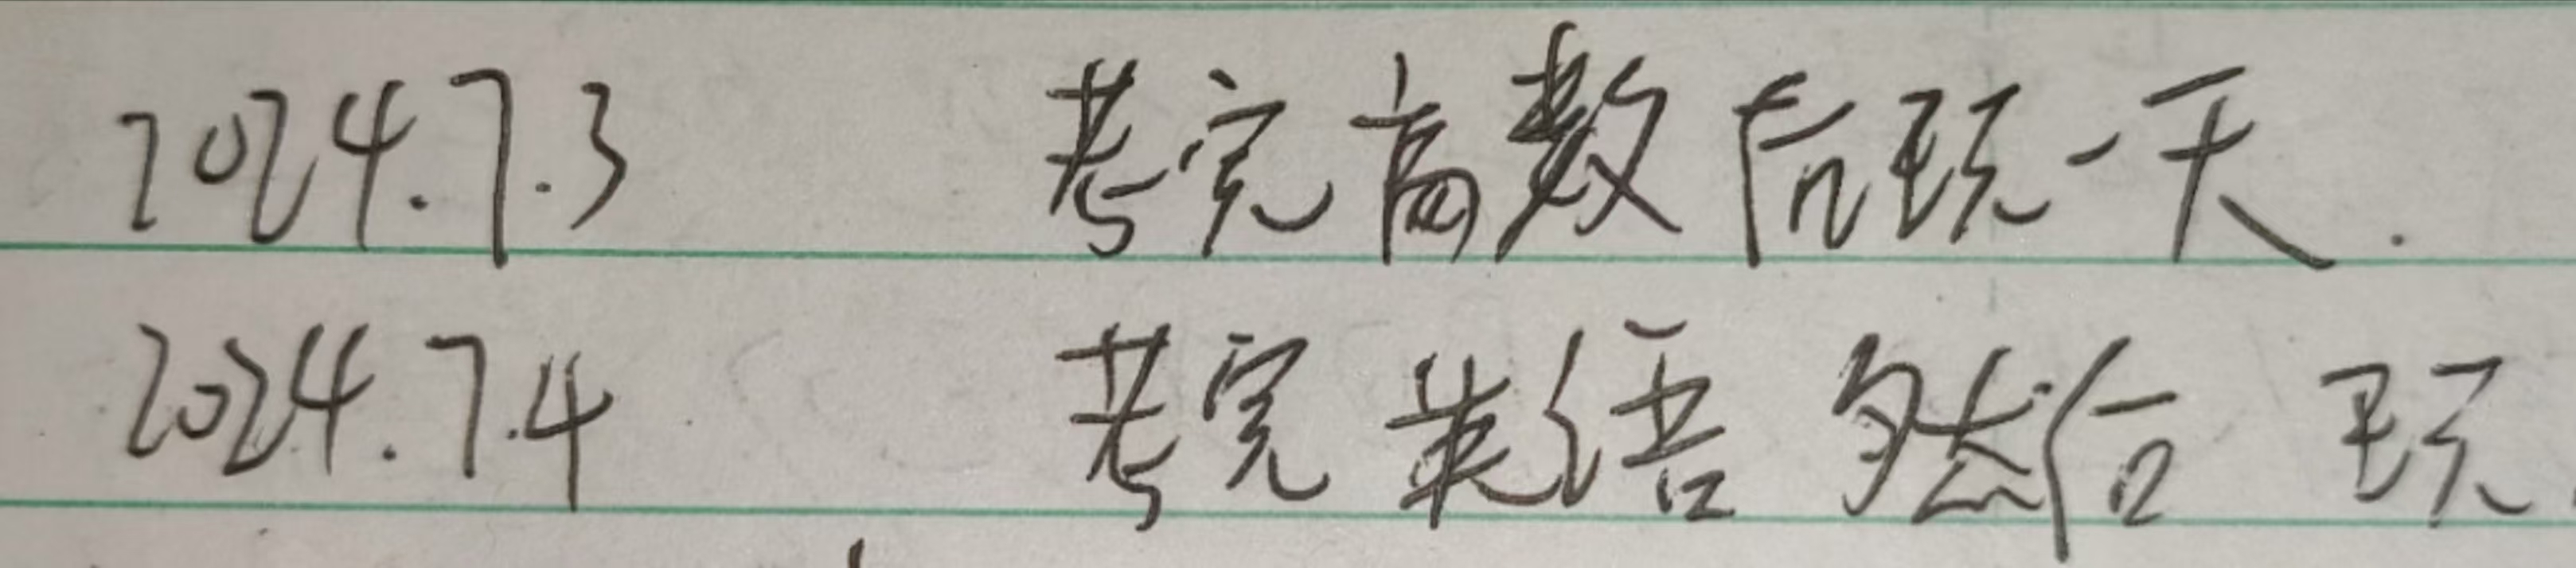 2024.7.3 考完高数后玩一天.
2024.7.4 考完英语 然后 玩.